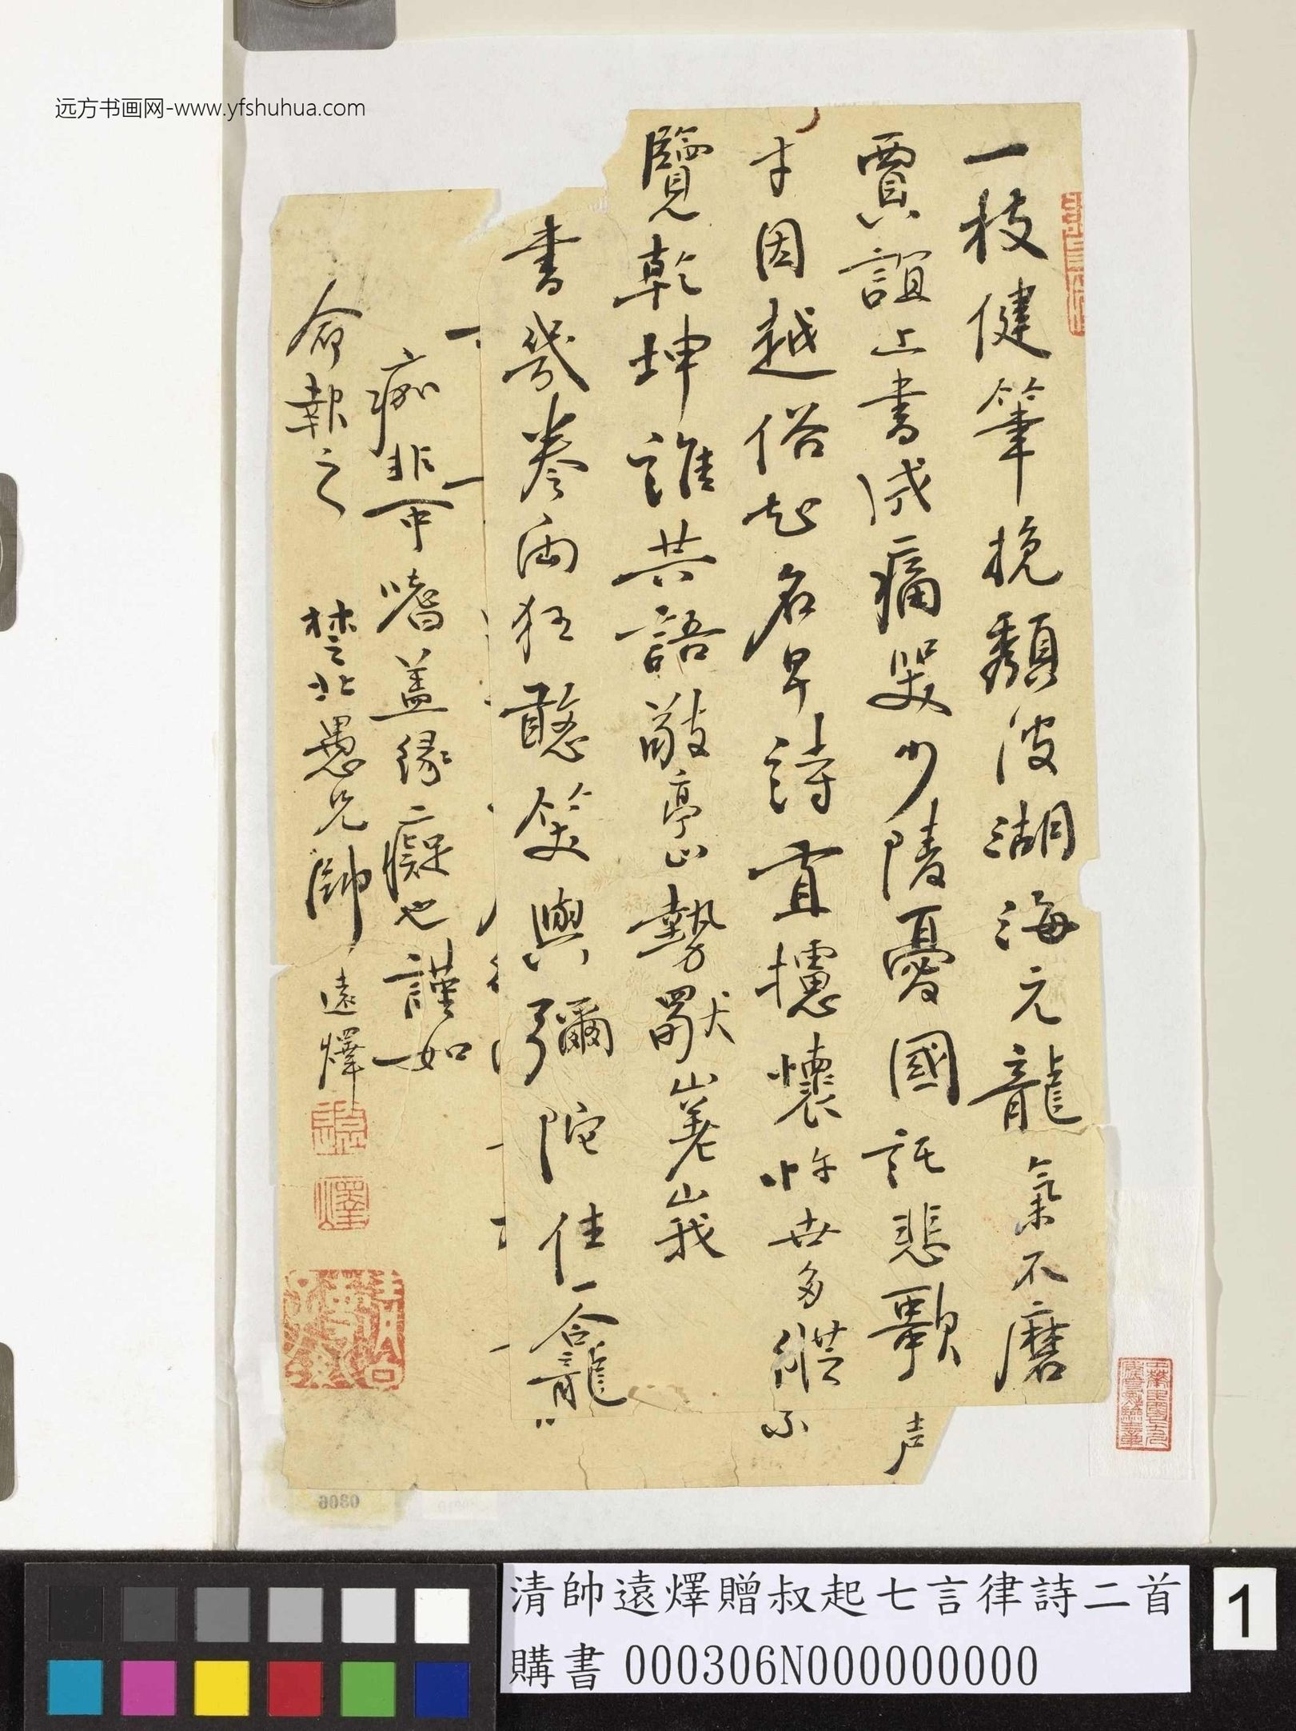 远方书画网-www.yfshuhua.com
一枝健筆挽頹波湖海元龍氣不磨
賈誼上書成痛哭少陵憂國託悲歌
才因越俗起名早詩直攄懷忤世多縱不
覽乾坤誰共語敬亭山勢獸嵳峩
書幾卷酒狂憨笑與彌陀住一龕
声
痂非嗜蓋緣癡也謹如
命報之 楚北愚兄帥遠燡
0306
清帥遠燡贈叔起七言律詩二首
購書 000306N000000000
1